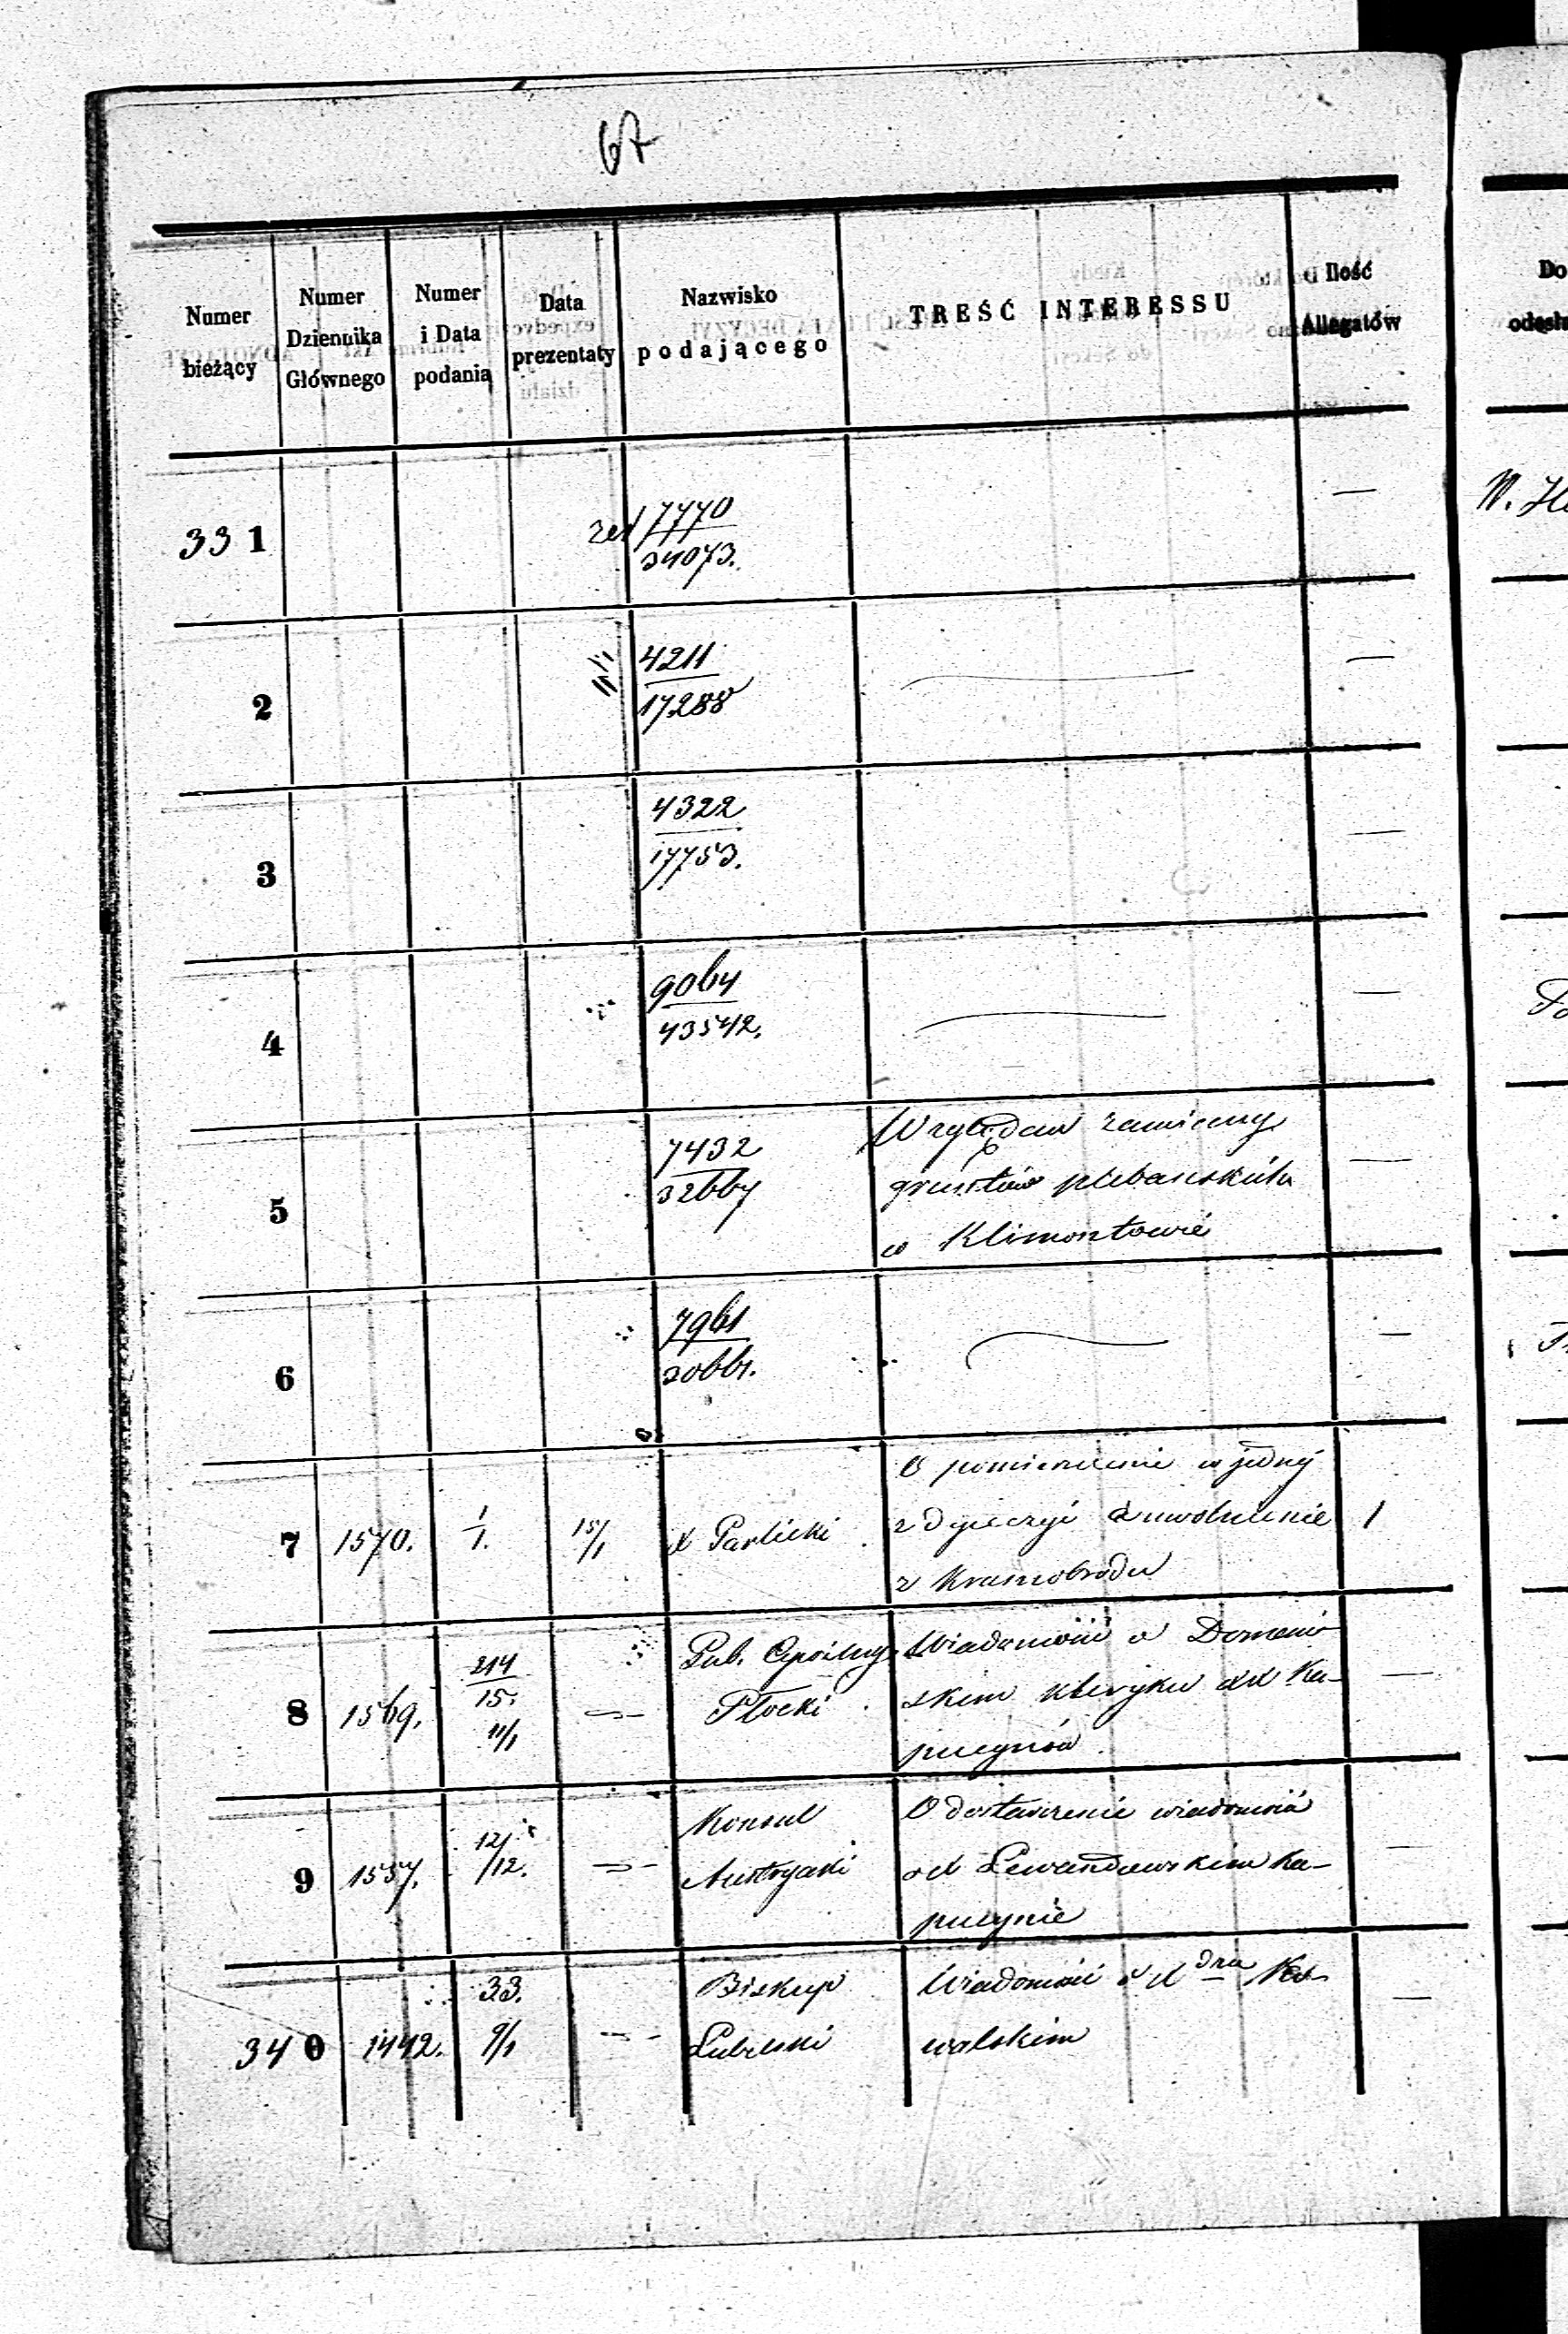 67
Numer bieżący
Numer Dziennika Głównego
Numer i Data podania
Data prezentaty
Nazwisko podającego
TREŚĆ INTERESSU
Ilość Allegatów
Do
331
7770
34073.
—
2
4211
17288
—
3
4322
17753.
—
4
9064
43542.
—
5
7432
32667
Względem zamiany
gruntów plebańskich
w Klimontowie
—
6
7961
—
7
1570.
1/1.
15/1
X Pawlicki
O pomieszczenie w jednej
z dyecezyi
z Krasnobrodu
1
8
1569.
214
15.
11/1
Gub. Cywilny
Płocki
Wiadomość o
skim kleryku od Ka-
pucynów
—
9
1557.
12/12.
Konsul
Austryacki
O dostawienie wiadomości
Lewandowskim Ka-
pucynie
—
340
1442.
33.
9/1
Biskup
Lubelski
Wiadomość o X Ko-
walskim
—